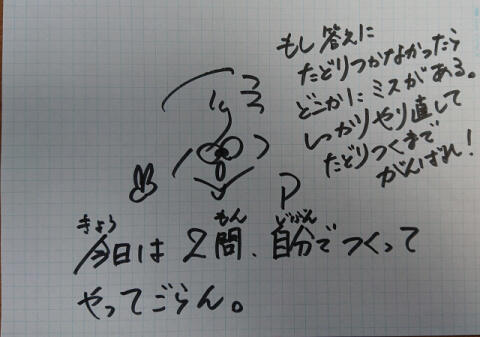 もし答えに
たどりつかなかったら
どこかにミスがある。
しっかりやり直して
たどりつくまで
がんばれ！
P
きょう もん じぶん
今日は2問、自分でつくって
やってごらん。